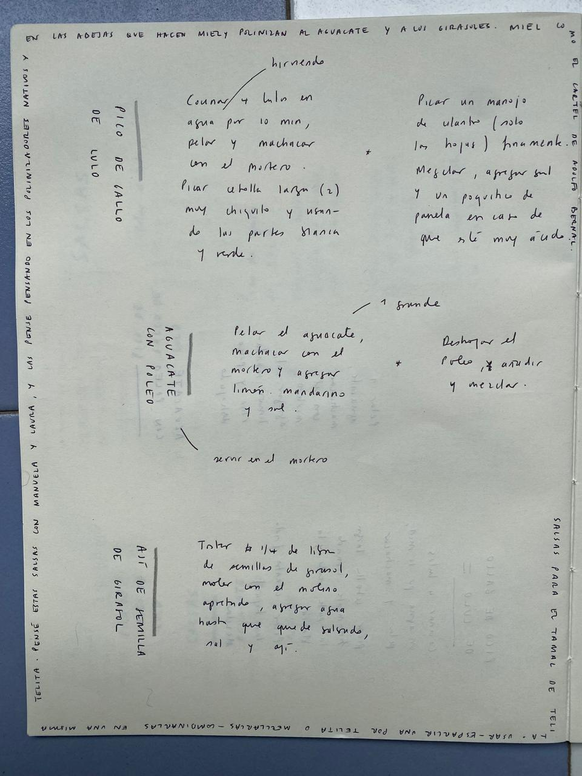 SALSAS PARA EL TAMAL DE TELI
TA. USAR-ESPARCIR UNA POR TELITA O MEZCLARLAS-COMBINARLAS EN UNA MISMA
TELITA. PENSÉ ESTAS SALSAS CON MANUELA Y LAURA, Y LAS PENSÉ PENSANDO EN LOS POLINIZADORES NATIVOS Y
EN LAS ABEJAS QUE HACEN MIEL Y POLINIZAN AL AGUACATE Y A LOS GIRASOLES. MIEL CO
MO EL CARTEL DE ADOLFO BERNAL.
PICO DE GALLO
DE LULO
hirviendo
Cocinar y lulo en
agua por 10 min,
pelar y machacar
con el mortero.
Picar cebolla larga (2)
muy chiquito y usan-
do las partes blanca
y verde.
*
Picar un manojo
de cilantro (solo
las hojas) finamente.
Mezclar, agregar sal
y un poquito de
panela en caso de
que esté muy ácido.
AGUACATE
CON POLEO
1 grande
Pelar el aguacate,
machacar con el
mortero y agregar
limón mandarino
y sal.
*
Deshojar el
Poleo, y añadir
y mezclar.
servir en el mortero
AJÍ DE SEMILLA
DE GIRASOL
Tostar 1/4 de libra
de semillas de girasol,
moler con el molino
apretado, agregar agua
hasta que quede salsudo,
sal y ají.